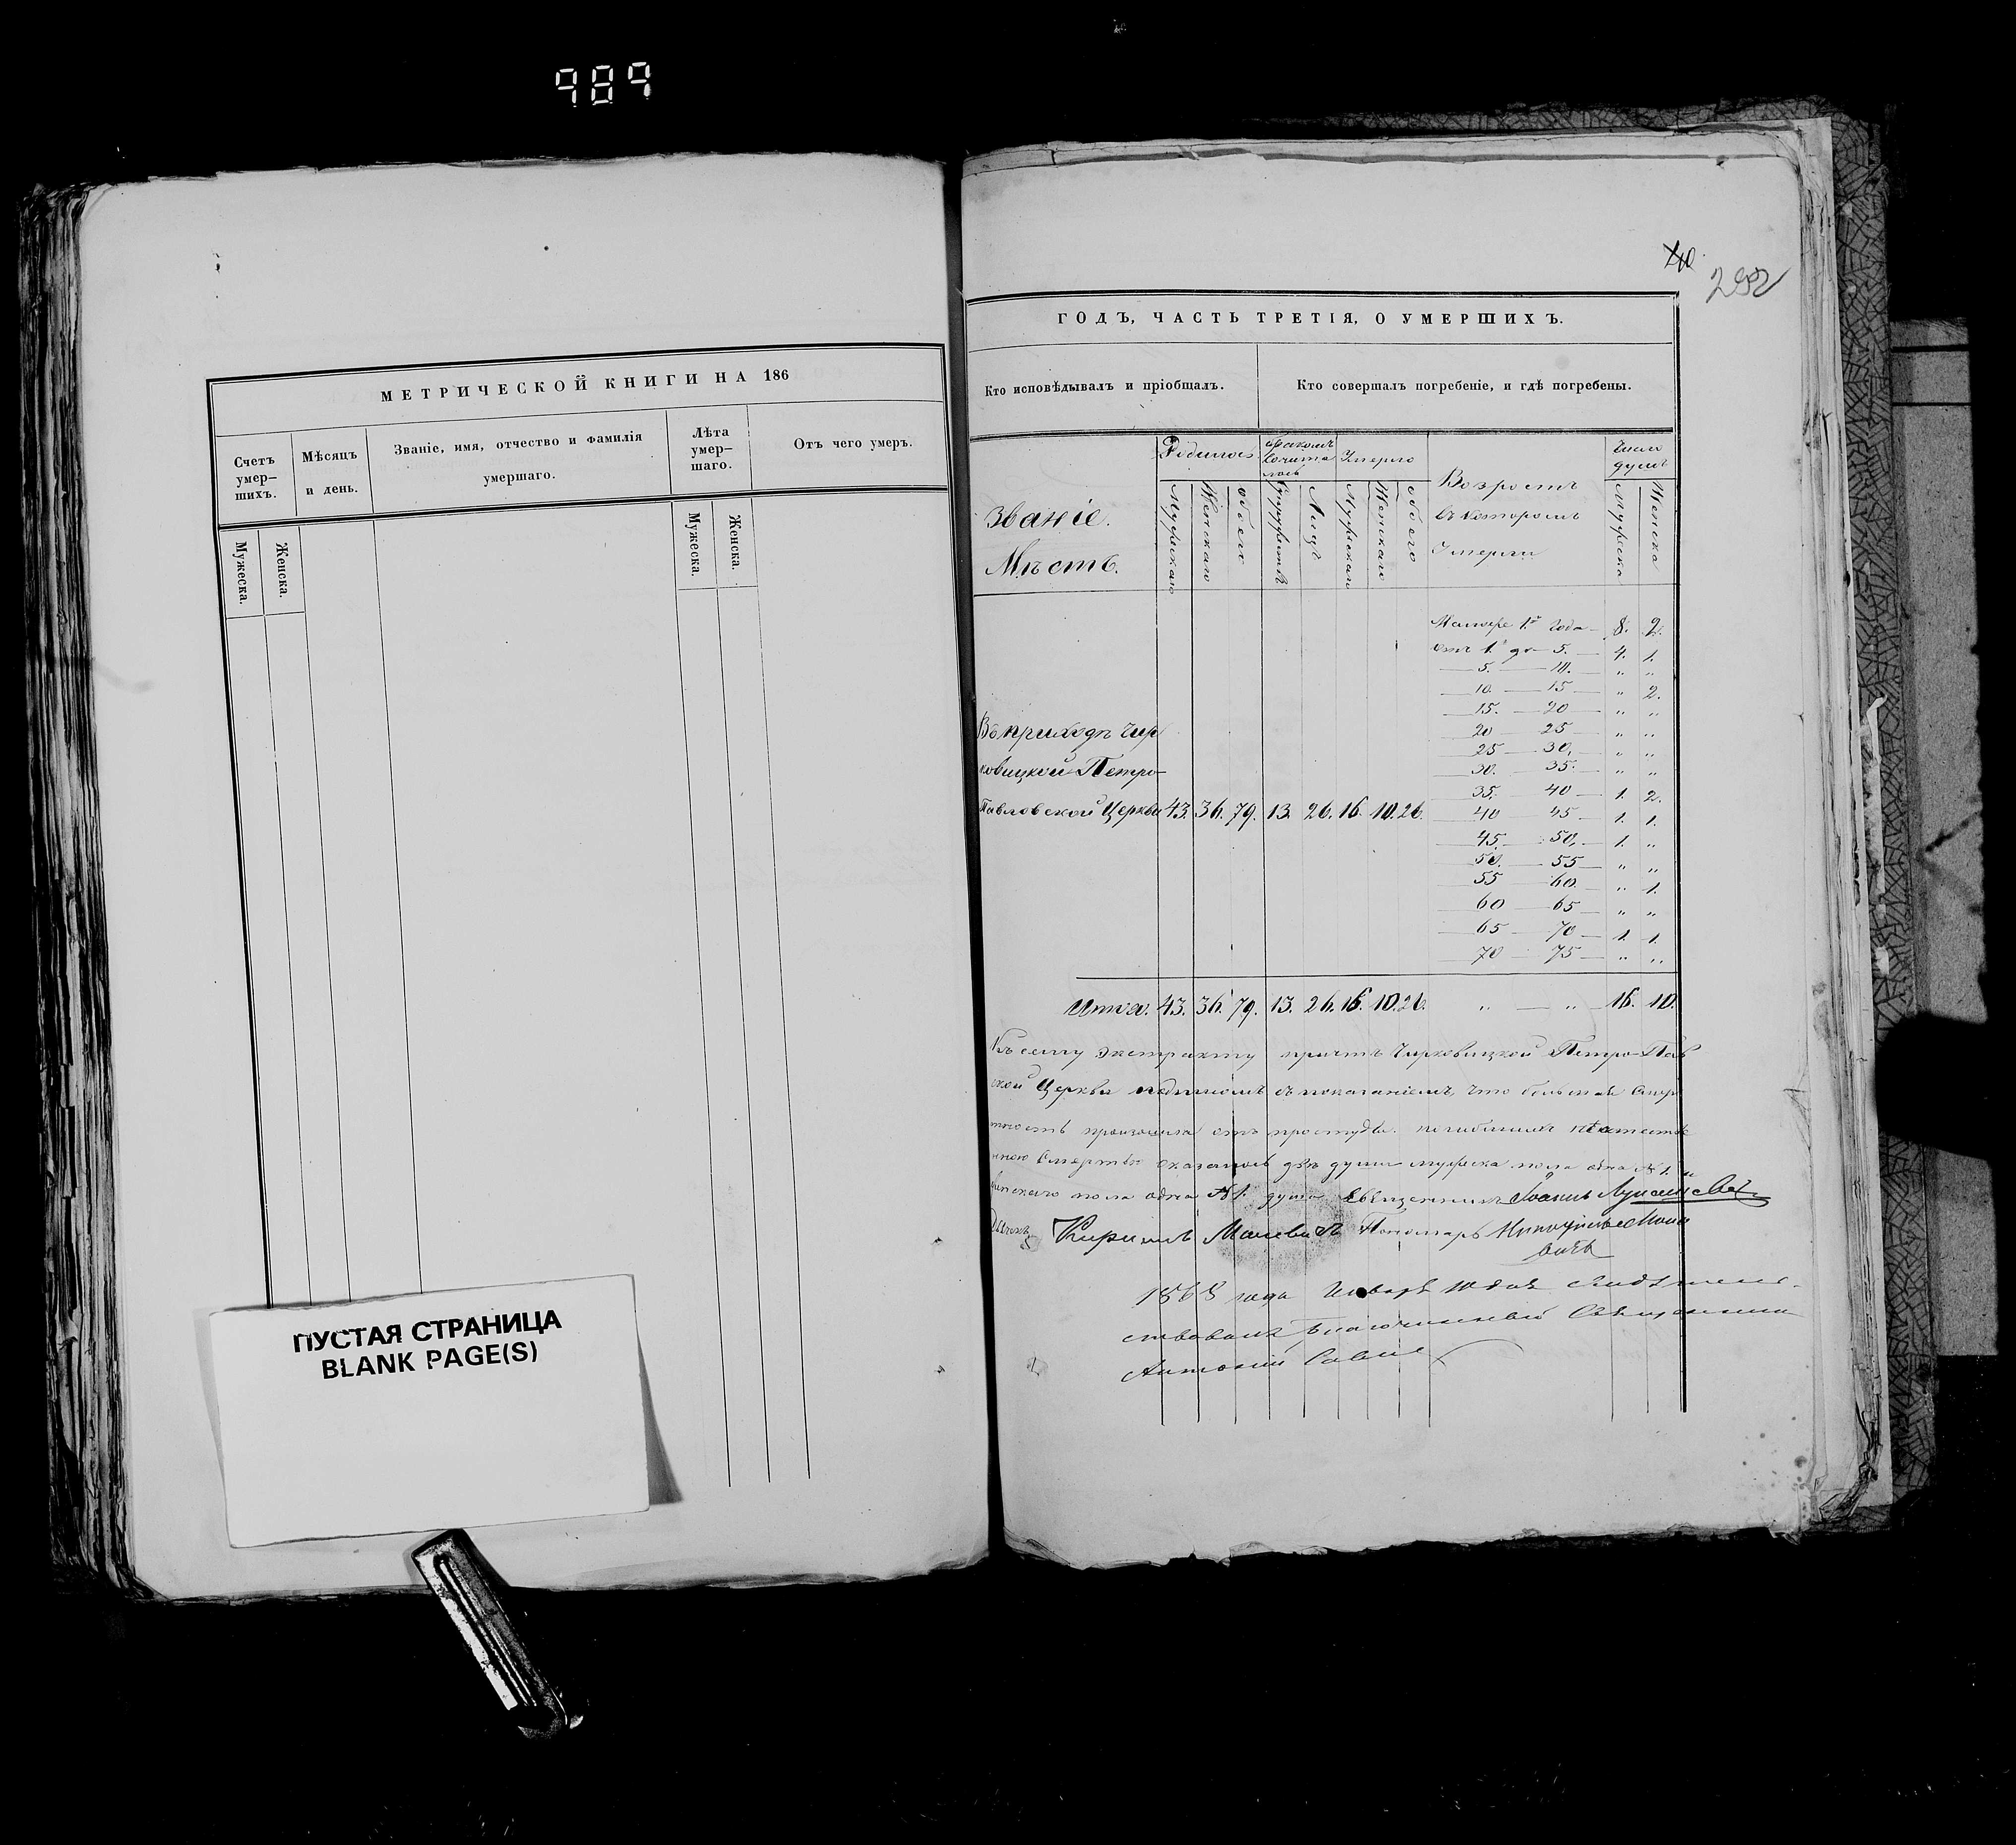 989
МЕТРИЧЕСКОЙ КНИГИ НА 186
Счетъ умер-шихъ.
Мѣсяцъ и день.
Званіе, имя, отчество и фамилія умершаго.
Лѣта умер-шаго.
Отъ чего умеръ.
Мужеска.
Женска.
Мужеска.
Женска.
ПУСТАЯ СТРАНИЦА
BLANK PAGE(S)
40
ГОДЪ, ЧАСТЬ ТРЕТІЯ, О УМЕРШИХЪ.
Кто исповѣдывалъ и пріобщалъ.
Кто совершалъ погребеніе, и гдѣ погребены.
Званіе.
Мѣстъ.
Родилось
Умерло
Возростъ
въ которомъ
Умерли
Число
душъ
Мужскаго
Женскаго
обоего
Лицъ
Мужскаго
Женскаго
обоего
Мужеска
Женска
1го года — 8. 2.
отъ 1. до 5. — 4. 1.
5. — 10. — " "
10. — 15 — " 2.
15. — 20 — " "
20 — 25 — " "
25 — 30. — " "
30. — 35. — " "
35. — 40 — 1. 2.
40 — 45 — 1. 1.
45. — 50. — 1. "
50. — 55 — " "
55 — 60. — " 1.
60 — 65 — " "
65 — 70 — 1. 1.
70 — 75 — " "
Въ приходѣ Чир
ковицкой Петро-
Павловской Церкви 43. 36. 79. 13. 26. 16. 10. 26.
Итого. 43. 36. 79. 13. 26. 16. 10. 26. " — " — 16. 10.
Къ сему экстракту причтъ Чирковицкой Петро-Пав
ской Церкви съ показаніемъ, что большая Смер
тность произошла отъ простуды.
Смертью оказалось двѣ души мужеска пола одна № 1. и
женскаго пола одна № 1. душа. Священникъ Іоаннъ
Кириллъ Пономарь
1868 года Января дня свидѣтель-
ствовалъ Благочинный Священникъ
Антоній